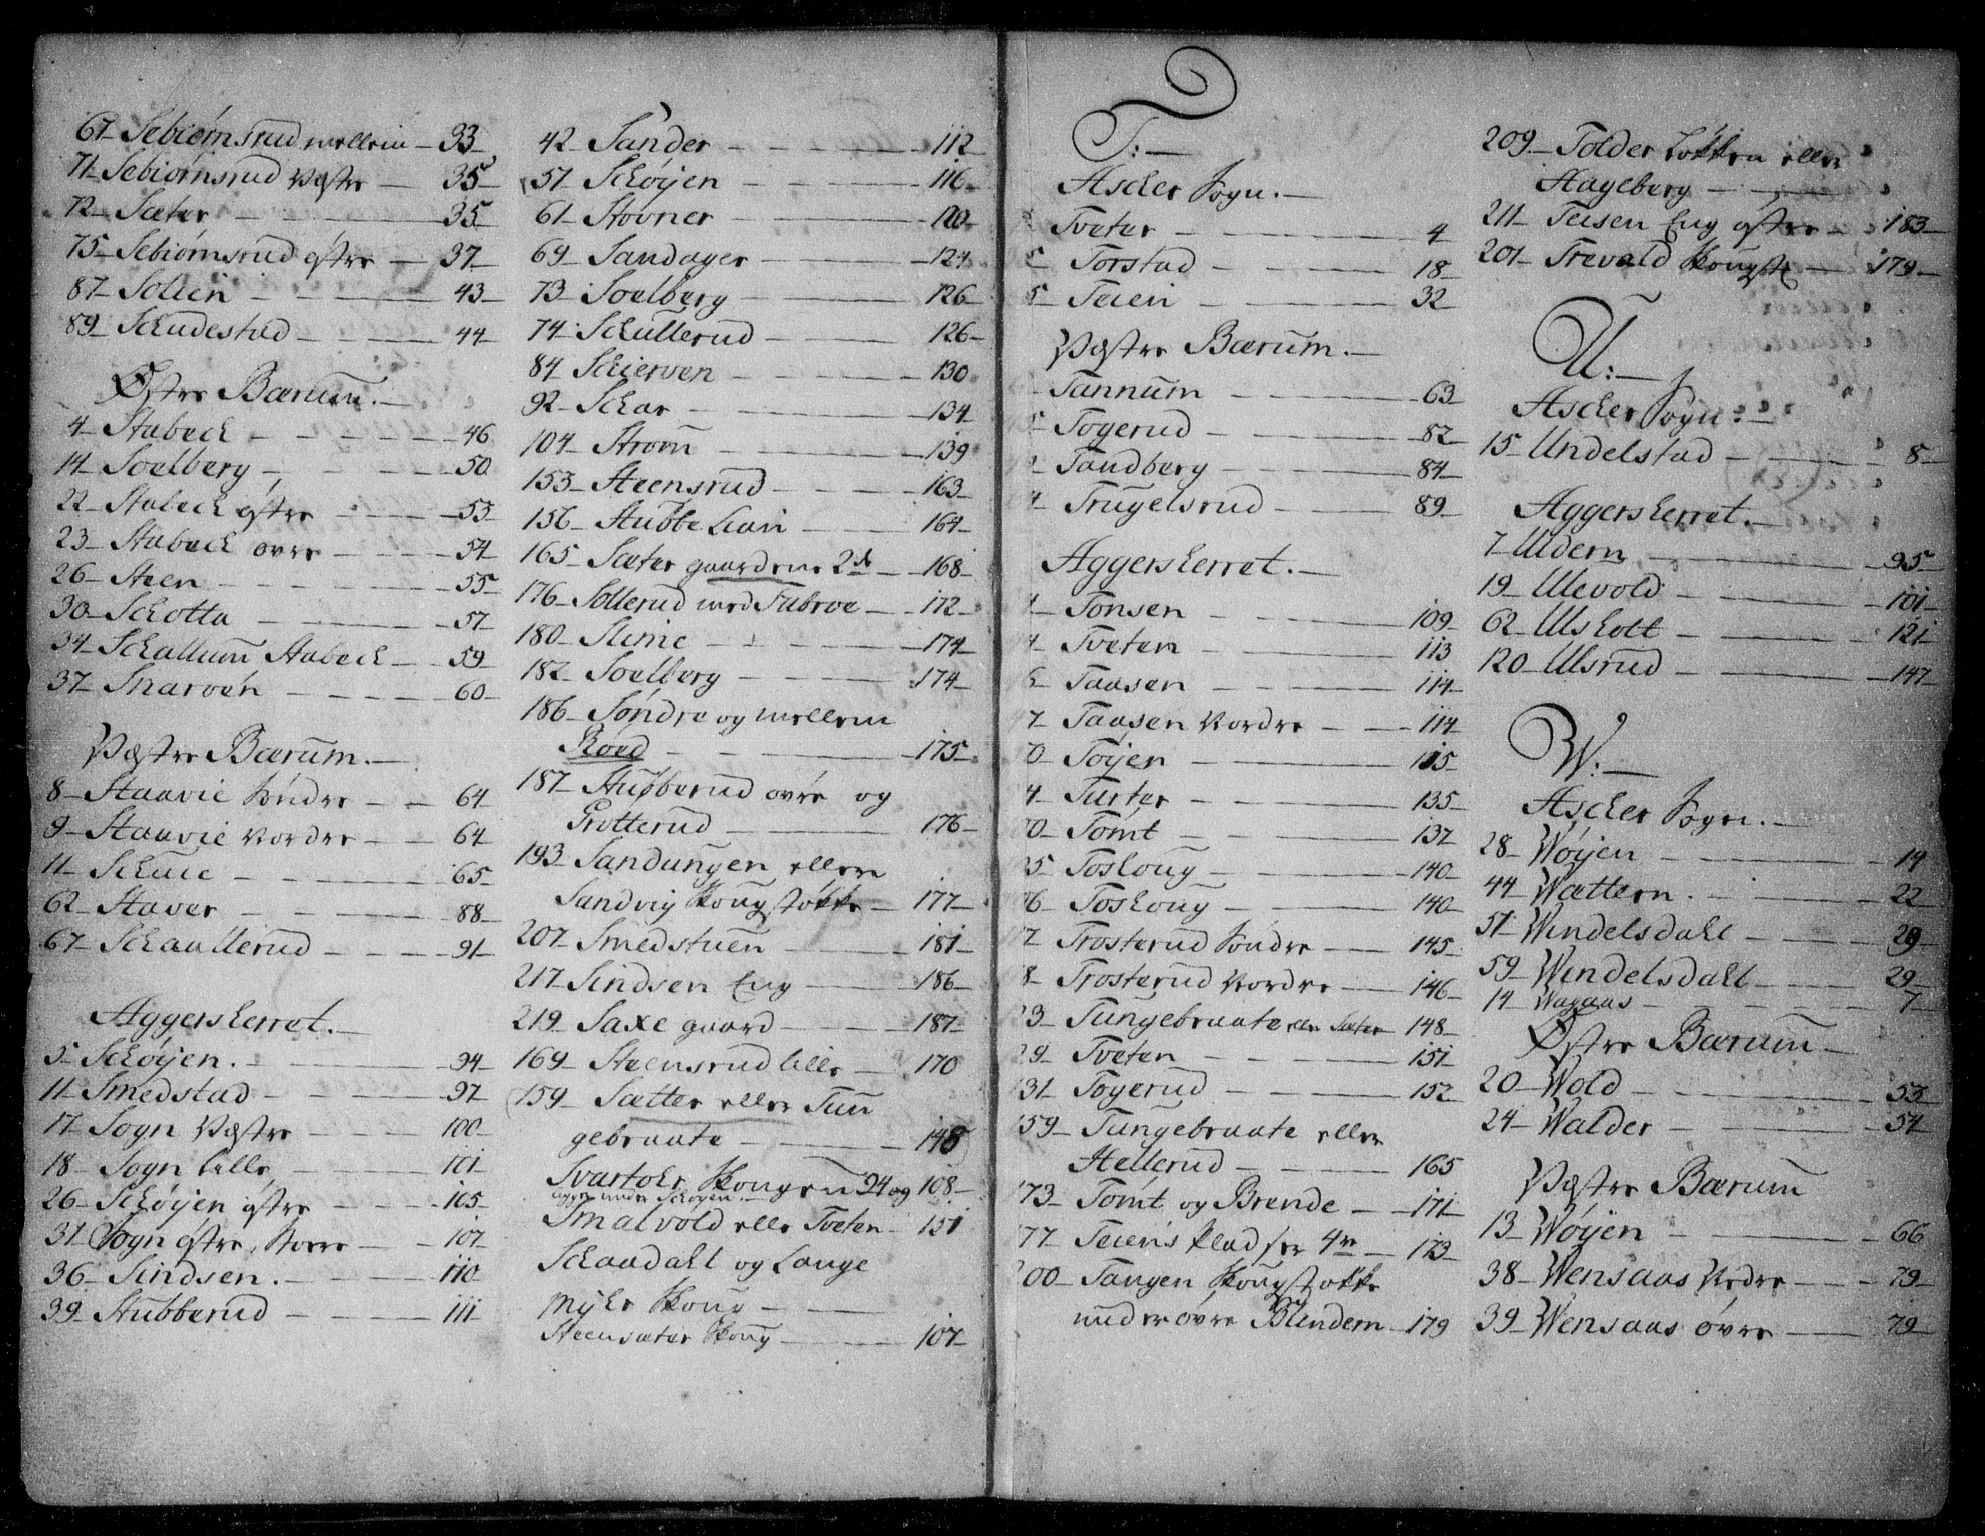 67 - Sebiørnsrud mellem - 33 -
71 - Sebiørnsrud Vestre - 35 -
72 - Sæter - 35 -
75 - Sebiørnsrud østre - 37 -
87 - Solien - 43 -
89 - Schudestad - 44 -
Østre Bærum. -
4 - Stabeck - 46
14 - Soelberg - 50
22 - Stabeck østre - 53 -
23 - Stabeck øvre - 54
26 - Steen - 55 -
30 - Schotta - 57 -
34 - Schallum Stabeck - 59 -
37 - Snarøen - 60 -
Vestre Bærum. -
8 - Staavie Søndre - 64 -
9 - Staavie Nordre - 64 -
11 - Schuie - 65 -
62 - Staver - 88 -
67 - Schaallerud - 91 -
Aggersherret. -
5 - Schøyen. - 94 -
11 - Smedstad - 97 -
17 - Sogn Vestre - 100 -
18 - Sogn lille - 101
26 - Schøyen østre - 105 -
31 - Sogn østre, Store - 107 -
36 - Sindsen. - 110
39 - Stubberud - 111 -
42 - Sander - 112 -
57 - Schøyen - 116 -
61 - Stovner - 120 -
69 - Sandager - 124
73 - Soelberg - 126 -
74 - Schullerud - 126 -
84 - Schierven - 130
92 - Schar - 134
104 - Strøm - 139
153 - Steensrud - 163 -
156 - Stubbe Lian - 164 -
165 - Sæter gaardene 2de - 168 -
176 - Sollerud med Fubroe - 172 -
180 - Slime - 174 -
182 - Soelberg - 174 -
186 - Søndre og mellem
Roed - 175 -
187 - Stubberud øvre og
Grotterud - 176 -
193 - Sandungen eller
Sandvig Skougstøkke - 177 -
207 - Smedstuen - 181 -
217 - Sindsen Eng - 186 -
219 - Saxe gaard - 187 -
169 - Steensrud lille - 170
159 - Sætter eller Tun
gebraate - 148
Svartoer Skougen 94 og 108 -
ligger under Schøyen
Smalvold eller Tveten - 151
Schaadahl og Lange
Myhr Skoug -
Steensæter Skoug - 107 -
T: -
Ascher Sogn. -
Tveter - 4 -
Torstad - 18 -
5 - Teien - 32
Vestre Bærum. -
Tannum - 63 -
Togerud - 82 -
Tandberg - 84 -
Trugelsrud - 89 -
Aggersherret. -
Tonsen - 109 -
4 - Tveten - 113
Taasen - 114 -
7 - Taasen Nordre - 114 -
0 - Tøyen - 115 -
4 - Turter - 135 -
0 - Tømt - 137 -
5 - Toshoug - 140 -
6 - Toshoug - 140 -
7 - Trosterud Søndre - 145 -
8 - Trosterud Nordre - 146 -
23 - Tungebraate eller Sæter 148 -
29 - Tveten - 151 -
131 - Togerud - 152 -
159 - Tungebraate eller
Hellerud - 165
173 - Tømt og Brende - 171 -
177 - Teiens Pladser 4re - 173 -
200 - Tangen Skougstøkke
under øvre Blindern - 179
209 - Tolder Løkken eller
Hageberg -
211 - Teisen Eng østre - 183 -
201 - Trevald Skougst - 179 -
U: -
Ascher Sogn: -
15 - Undelstad - 8 -
Aggersherret. -
7 - Uldern - 95 -
19 - Ulevold - 101 -
62 - Ulsholt - 121 -
120 - Ulsrud - 147 -
W: -
Ascher Sogn. -
28 - Wøyen - 14
44 - Wettern. - 22 -
57 - Windelsdahl - 29 -
59 - Windelsdahl - 29 -
14 Wagaas - 7 -
Østre Bærum -
20 - Wold - 53 -
24 - Walder - 54 -
Vestre Bærum
13 - Wøyen - 66
38 - Wensaas Nedre - 79 -
39 - Wensaas øvre - 79 -